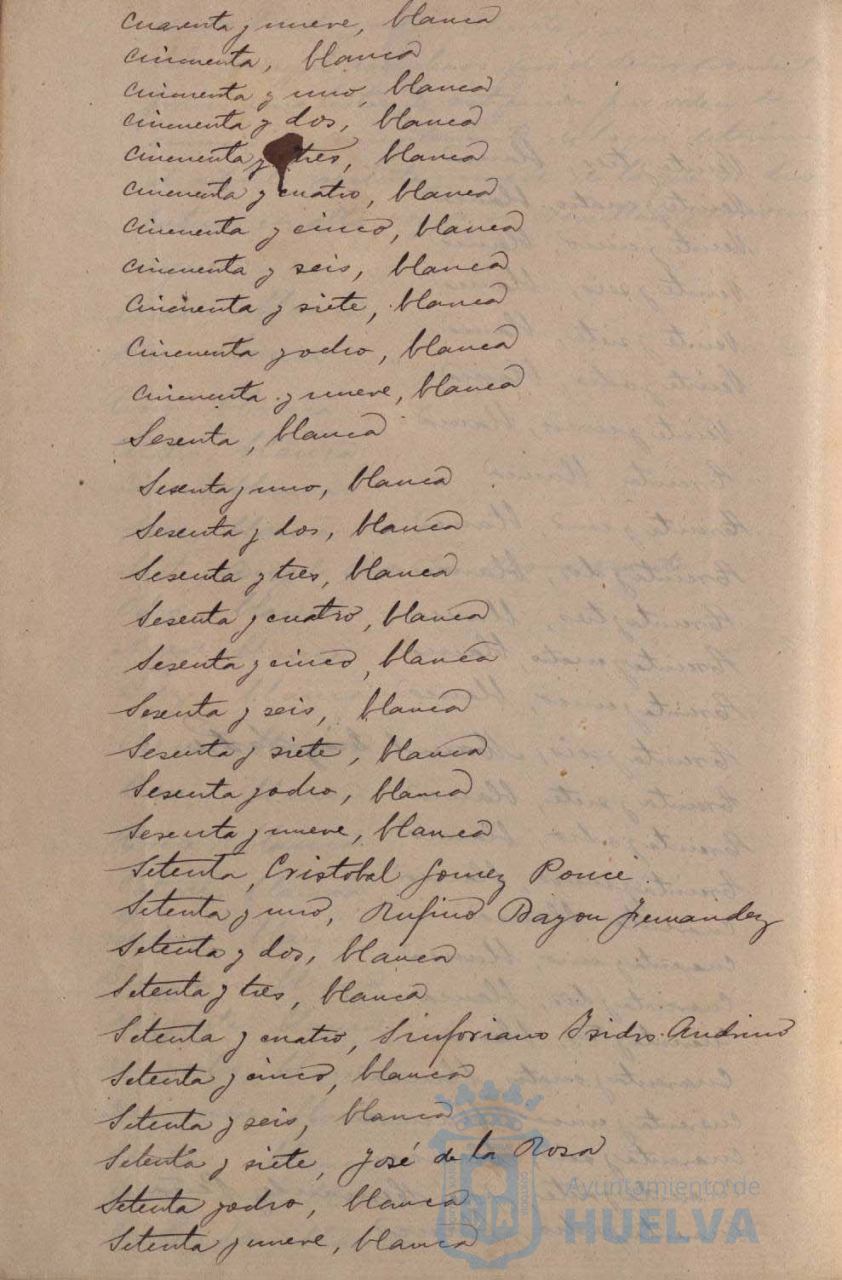 Cuarenta y nueve, blanca
Cincuenta, blanca
Cincuenta y uno, blanca
Cincuenta y dos, blanca
Cincuenta y tres, blanca
Cincuenta y cuatro, blanca
Cincuenta y cinco, blanca
Cincuenta y seis, blanca
Cincuenta y siete, blanca
Cincuenta y ocho, blanca
Cincuenta y nueve, blanca
Sesenta, blanca
Sesenta y uno, blanca
Sesenta y dos, blanca
Sesenta y tres, blanca
Sesenta y cuatro, blanca
Sesenta y cinco, blanca
Sesenta y seis, blanca
Sesenta y siete, blanca
Sesenta y ocho, blanca
Sesenta y nueve, blanca
Setenta, Cristobal Gomez Ponce
Setenta y uno, Rufino Bayon Fernandez
Setenta y dos, blanca
Setenta y tres, blanca
Setenta y cuatro, Sinforiano Isidro Andrino
Setenta y cinco, blanca
Setenta y seis, blanca
Setenta y siete, José de la Rosa
Setenta y ocho, blanca
Setenta y nueve, blanca
Ayuntamiento de
HUELVA